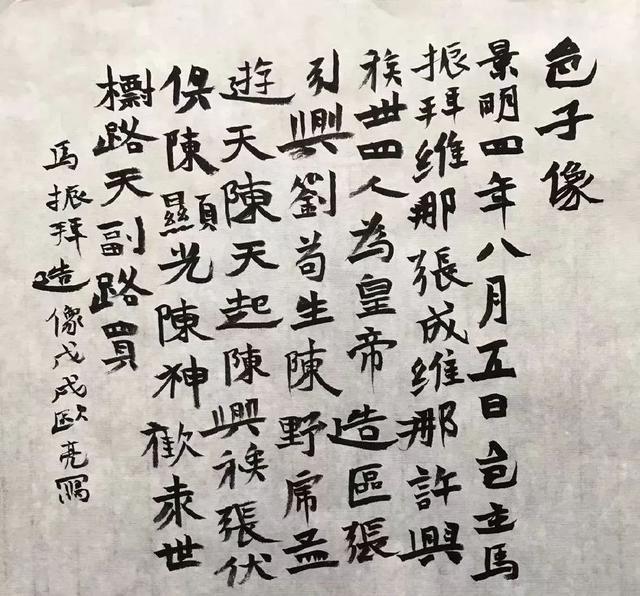 邑子像
景明四年八月五日邑主馬
振拜維那張成維那許興
族丗四人為皇帝造區張
引興劉苟生陳野虎孟
遊天陳天起陳興族張伏
俱陳顯光陳神歡来世
標路天副路買
馬振拜造像戊戌歐亮寫